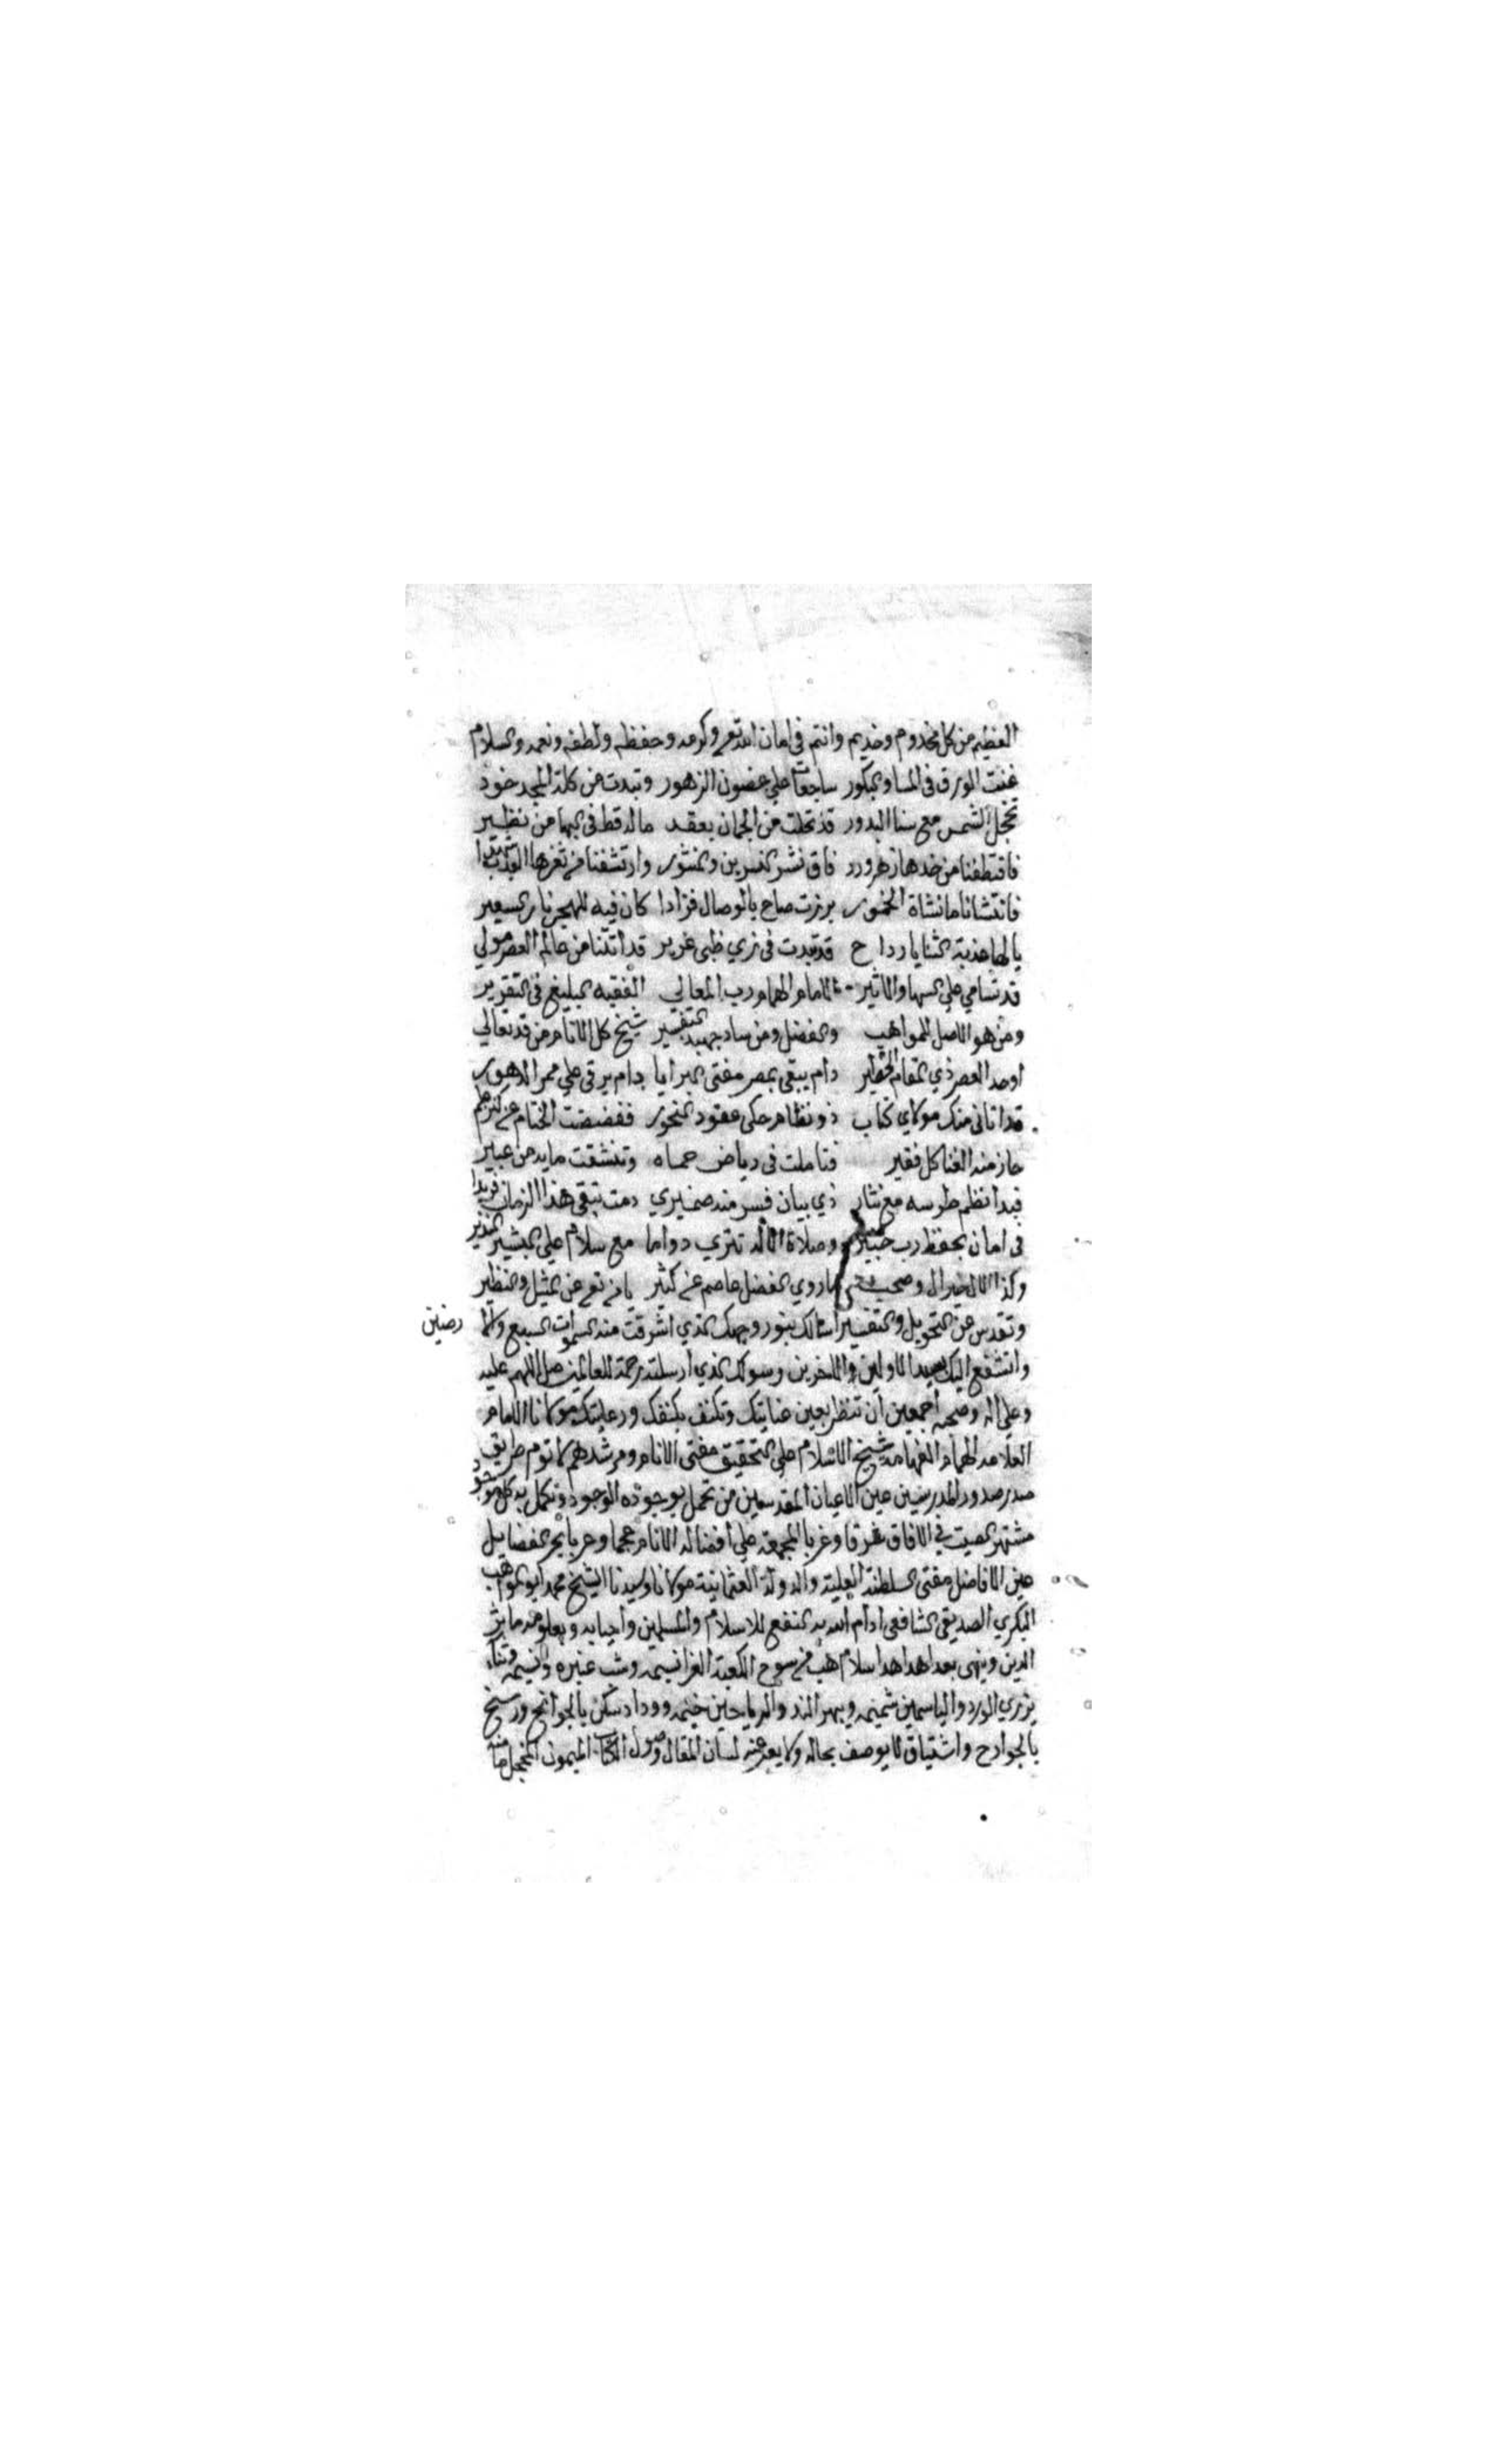 العظيم من كل مخدوم وخديم وانتم في امان الله تع وكرمه وحفظه ولطفه ونعمه والسلام
غنت الورق في المسا والبكور ساجعات علي غصون الزهور وتبدت من كلة المجد خود
تخجل الشمس مع سنا البدور قد تحلت من الجمان بعقد ماله قط في البها من نظير
فاقتطفنا من خدها زهر ورد فاق نشر النسرين والمنثور وارتشفنا من ثغرها العذب شهدا
فانتشانا ما نشاة الخمور برزت صاح بالوصال فزادا كان فيه للهجر نار السعير
يالها عذبة الثنايا رداح قد تبدت في زي ظبي غرير قد اتتنا من عالم العصر مولي
قد تسامي علي السها والاثير الامام الهمام رب المعالي الفقيه البليغ في التقرير
ومن هو الاصل للمواهب والفضل ومن ساد جهبد التفسير شيخ كل الانام من قد تعالي
اوحد العصر ذي المقام الخطير دام يبقي بمصر مفتي البرايا دام يرقي علي ممر الدهور
قد اتاني منك مولاي كتاب ذو نظام حكي عقود النحور ففضضت الختام عن كنز علم
حاز منه الغنا كل فقير فتاملت في رياض حماه وتنشقت ما به من عبير
فبدا نظم طرسه مع نثار ذي بيان فسر منه ضميري دمت تبقي هذا الزمان فريدا
في امان بحفظ رب خبير وصلاة الاله تتري دواما مع سلام علي البشير النذير
وكذا الال خير ال وصحب ما روي الفضل عاصم عن كثير يا من تع عن المثيل والنظير
وتقدس عن التحويل والتفسير اسالك بنور وجهك الذي اشرقت منه السموات السبع والا رضين
واتشفع اليك بسيد الاولين والاخرين رسولك الذي ارسلته رحمة للعالمين صل اللهم عليه
وعلي اله وصحبه اجمعين ان تنظر بعين عنايتك وتكنف بكنفك ورعايتك مولانا الامام
العلامه الهمام الفهامه شيخ الاسلام علي التحقيق مفتي الانام ومرشدهم لاقوم طريق
صدر صدور المدرسين عين الاعيان المقدسين من تجمل بوجوده الوجود وتكمل به كل موجود
مشتهر الصيت في الافاق شرقا وغربا المجمع علي افضاله الانام عجما وعربا بحر الفضايل
عين الافاضل مفتي السلطنة العلية والدولة العثمانية مولانا وسيدنا الشيخ محمد ابو المواهب
البكري الصديقي الشافعي ادام الله به النفع للاسلام والمسلمين واحيا به وبعلومه ماثر
الدين وينهي بعد اهدا سلام هب من سوح الكعبة الغرا نسيمه وشب عنبره ونسيمه وثناء
يزري الورد والياسمين شميمه ويبهر الند والرياحين ختيمه ووداد سكن بالجوانح ورسخ
بالجوارح واشتياق لا يوصف بحاله ولا يعبر عنه لسان المقال وصول الكتاب الميمون المخجل